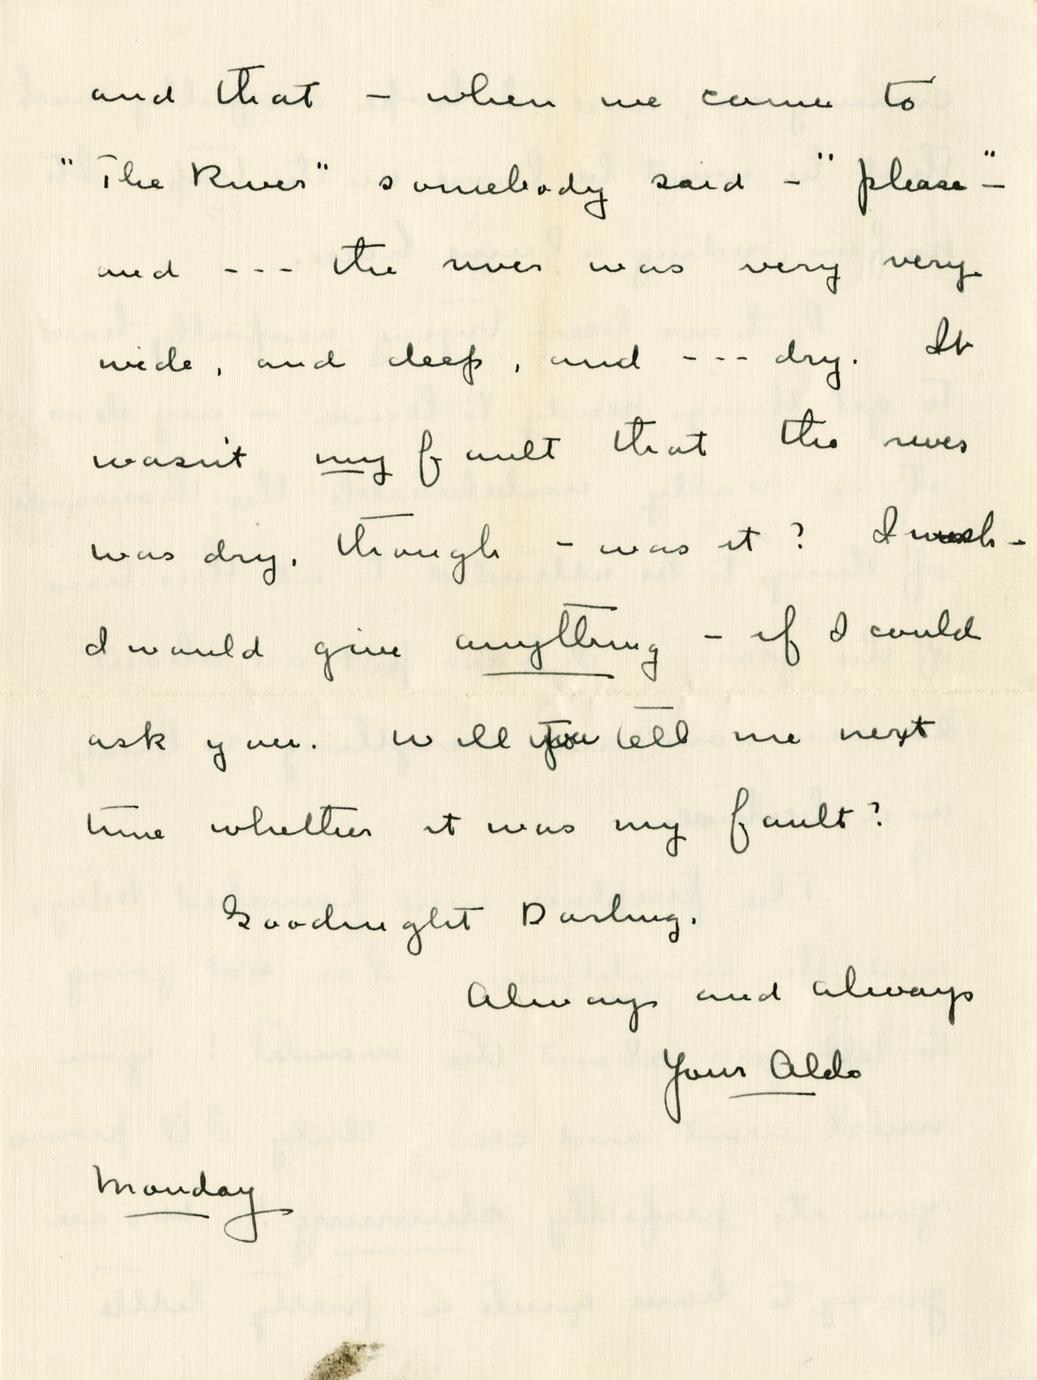 and that – when we came to
"The River" somebody said – "please" –
and --- the river was very very
wide, and deep, and --- dry. It
wasn't my fault that the river
was dry, though – was it? I wish –
I would give anything – if I could
ask you. Will you tell me next
time whether it was my fault?
Goodnight Darling.
Always and always
Your Aldo
Monday